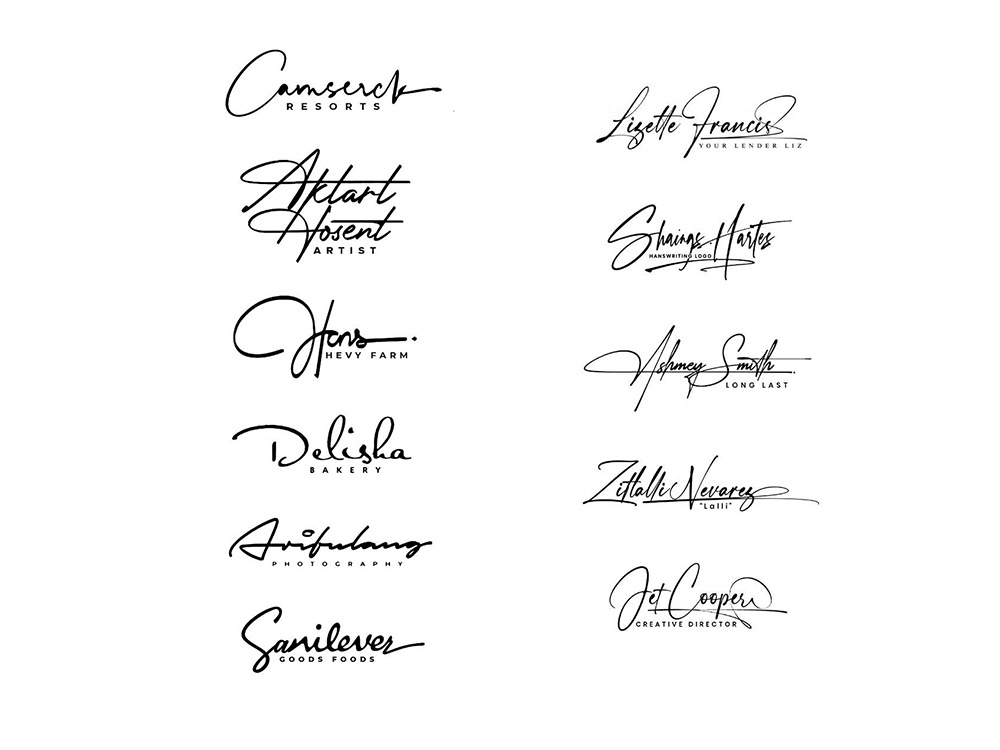 Camserck
RESORTS
Aktart
Hosent
ARTIST
Hens
HEVY FARM
Delisha
BAKERY
Arifulang
PHOTOGRAPHY
Sanilever
GOODS FOODS
Lizette Francis
YOUR LENDER LIZ
Shaings Hartes
HANSWRITING LOGO
Nshmey Smith
LONG LAST
Zitlalli Nevarez
"Lalli"
Jet Cooper
CREATIVE DIRECTOR